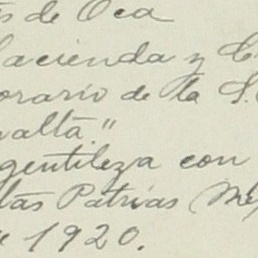 de Oca
Hacienda y
orario de la S.
valta."
gentileza con
tas Patrias Me
1920.